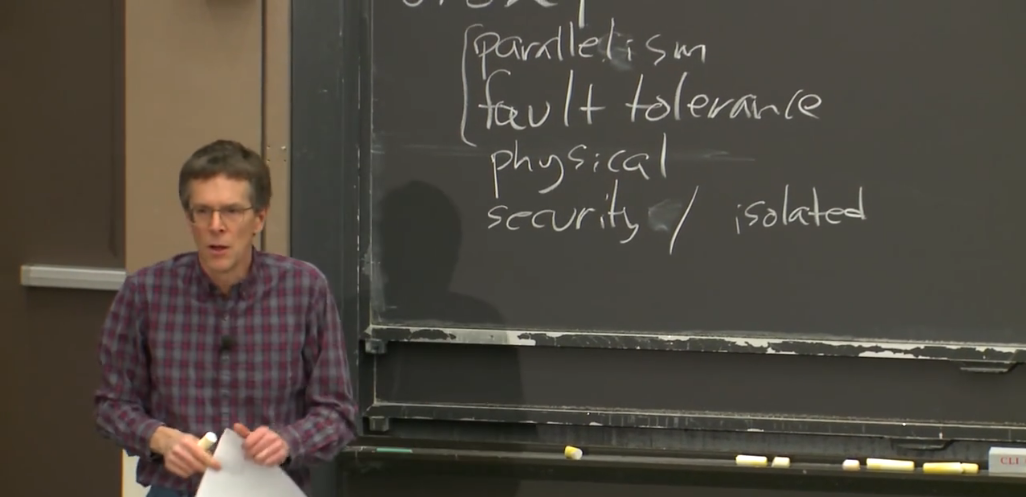 parallelism
fault tolerance
physical
security / isolated
CLI